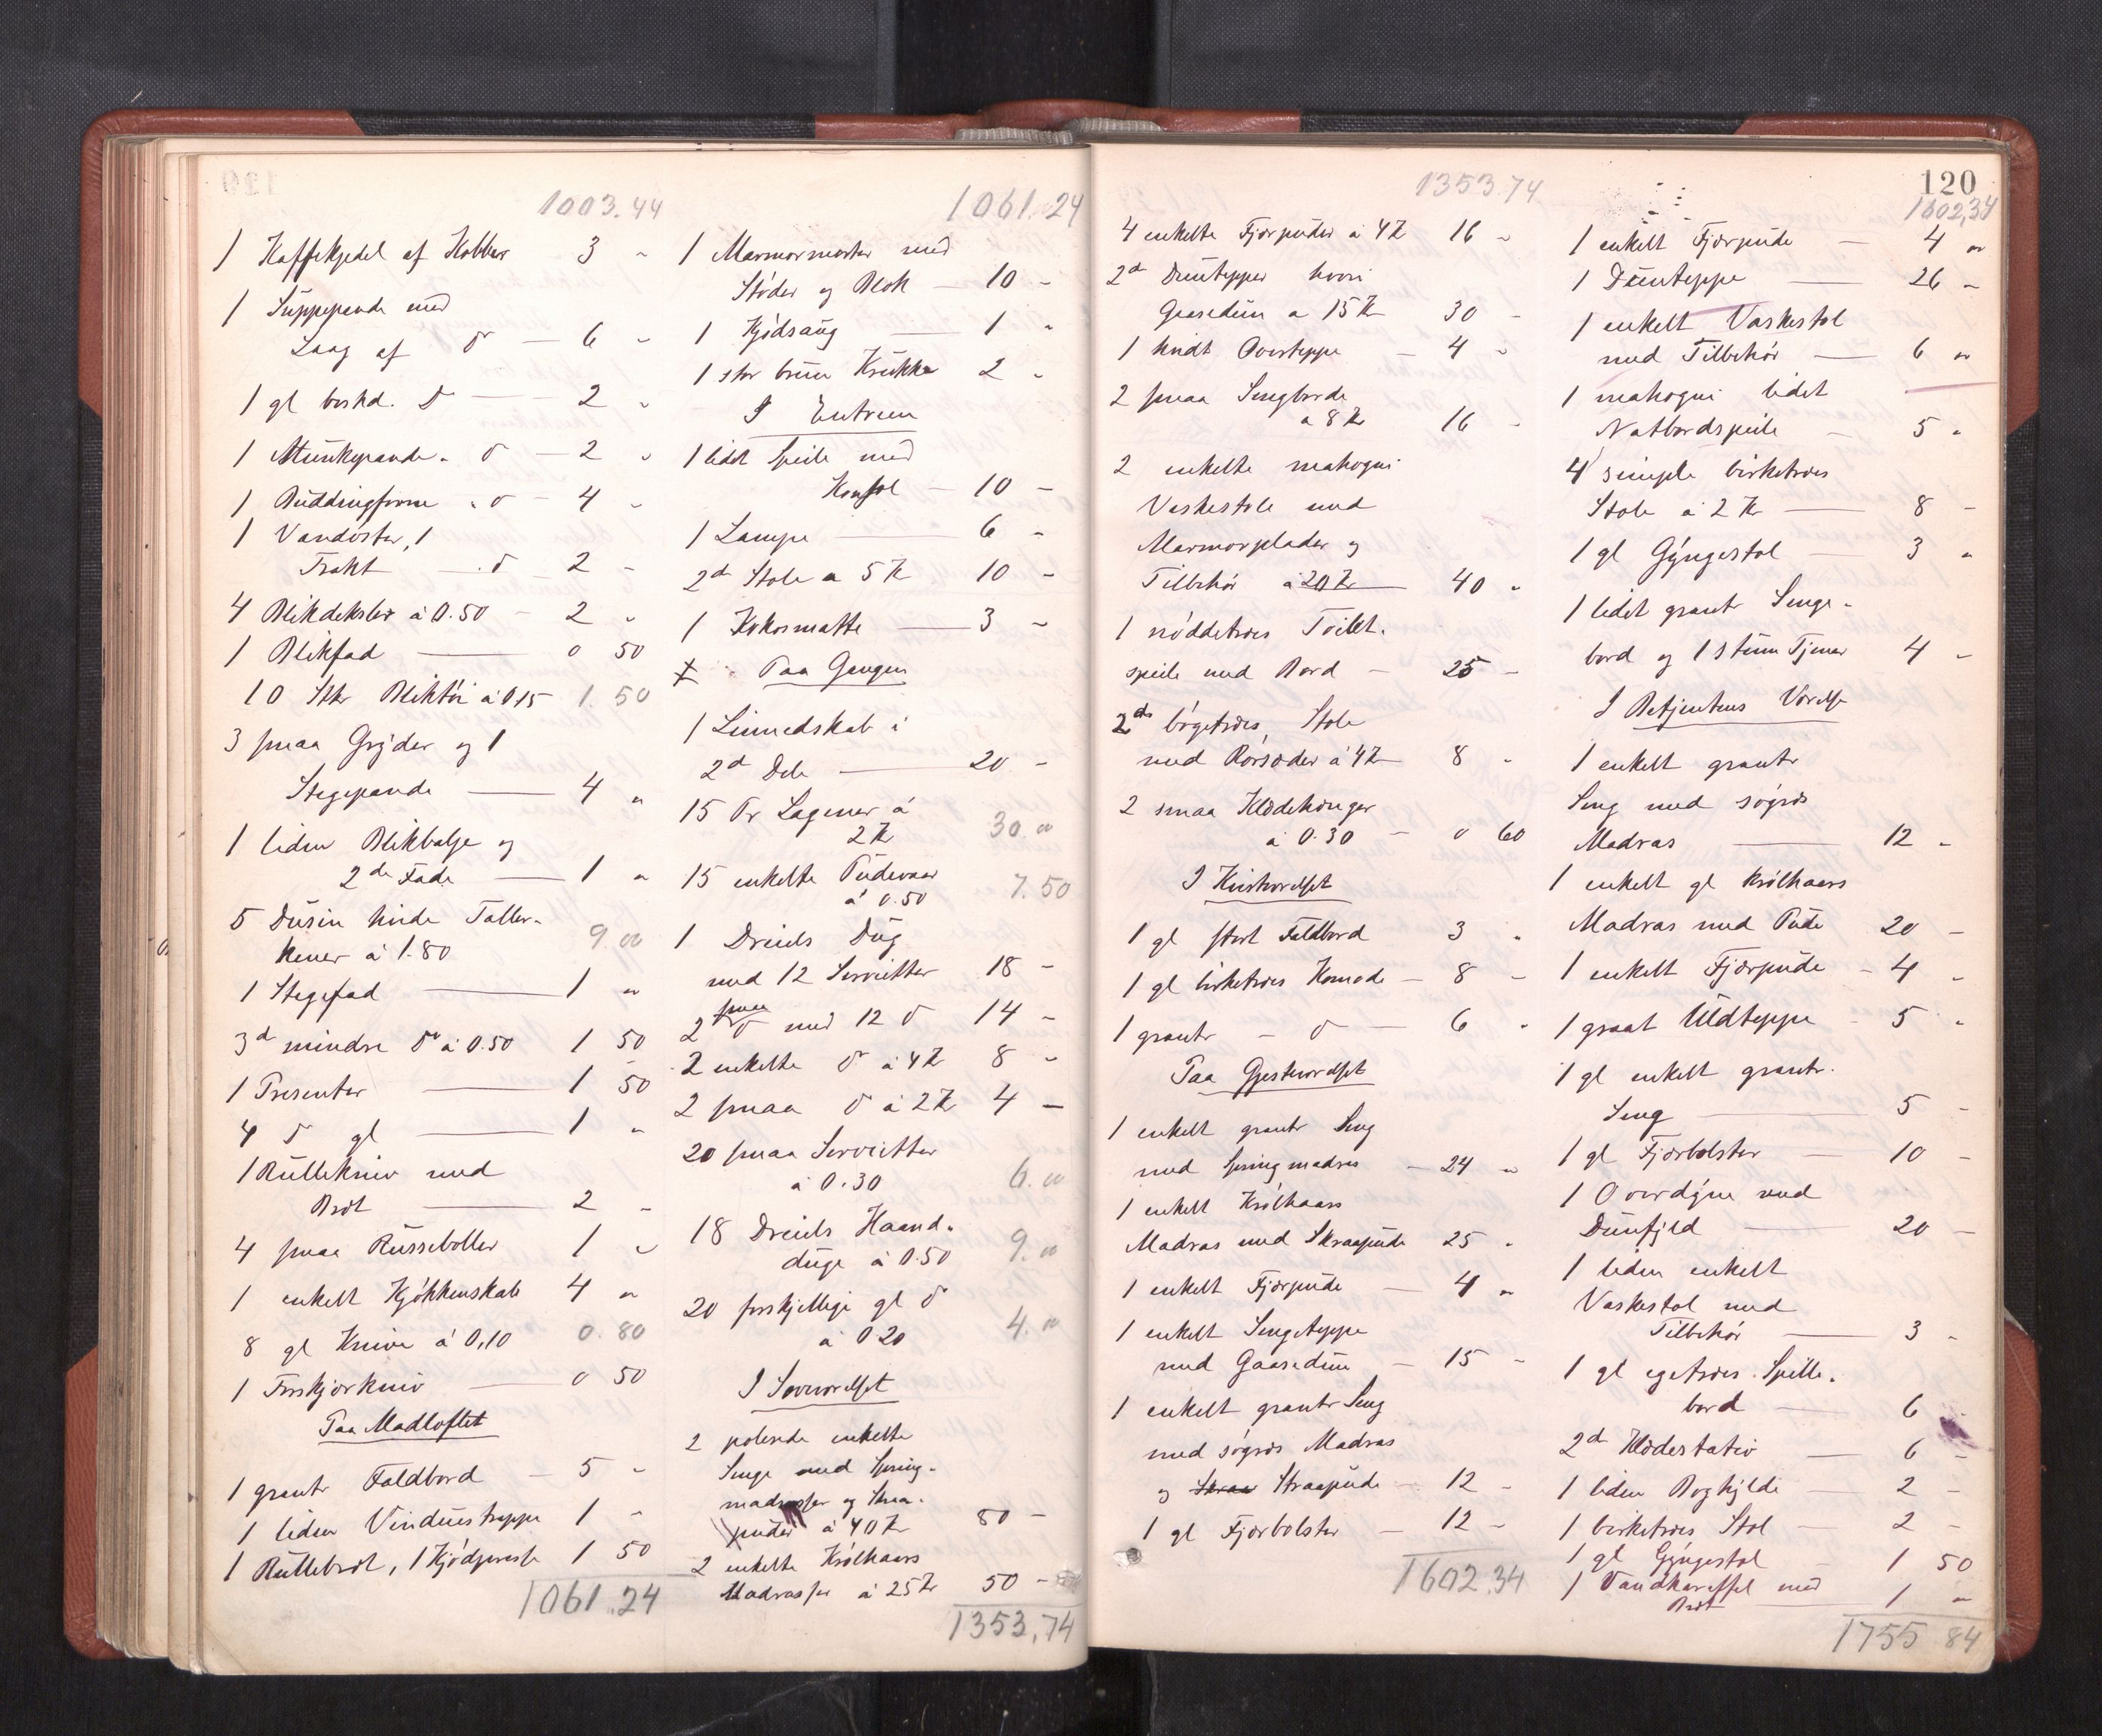 1003.44
1 Kaffekjedel af Kobber 3 "
1 Suppepande med
Laag af do — 6 "
1 gl beskd. do — 2 "
1 Munkepande " do — 2 "
1 Buddingform " do — 4 "
1 Vandøster, 1
Trakt — " do — 2 "
4 Blikdeksler à 0.50 — 2 "
1 Blikfad — 0 50
10 Stk Bliktøi à 0,15 1.50
3 smaa Gryder og 1
Stegepande — 4 "
1 liden Blikbalje og
2de Fade — 1 "
5 Dusin hvide Taller-
kener à 1.80 9.00
1 Stegefad — 1 "
3d mindre do à 0.50 1 50
1 Presenter — 1 50
4 do gl — 1 "
1 Rullekniv med
Bret — 2 "
4 smaa Russeboller 1 "
1 enkelt Kjøkkenskab 4 "
8 gl Knive à 0,10 0.80
1 Forskjærkniv — 0 50
Paa Madloftet
1 grantr Foldbord — 5 "
1 liden Vinduestrappe 1 "
1 Rullebret, 1 Kjødpresse 1 50
1061.24
1061.24
1 Marmormorter med
Støder og Blok — 10 -
1 Kjødsaug — 1 "
1 stor brun Krukke 2 "
I Entreen
1 lidet Speile med
Konsol — 10 -
1 Lampe — 6 "
2d Stole a 5 Kr 10 -
1 Kokosmatte — 3 "
Paa Gangen
1 Linnedskab i
2d Dele — 20 -
15 Pr Lagener à
2 Kr 30.00
15 enkelte Pudevaar
à 0.50 7.50
1 Dreiels Dug
med 12 Servietter 18 -
2 smaa do med 12 do 14 -
2 enkelte do à 4 Kr 8 "
2 smaa do à 2 Kr 4 -
20 smaa Servietter
à 0.30 6.00
18 Dreiels Haand-
duge à 0.50 9.00
20 forskjellige gl do
à 0 20 4.00
I Soveværelset
2 polerede enkelte
Senge med Spring-
madrasser og Skraa-
puder à 40 Kr 80 -
2 enkelte Krølhaars
Madrasser à 25 Kr 50 -
1353,74
1353.74
4 enkelte Fjærpuder à 4 Kr 16 "
2d Duntepper hvori
Gaasedun a 15 Kr 30 -
1 hvidt Overteppe — 4 "
2 smaa Sengborde
a 8 Kr 16 -
2 enkelte mahogni
Vaskestole med
Marmorplader og
Tilbehør à 20 Kr — 40 "
1 nøddetræs Toilet-
speile med Bord — 25 -
2de bøgetræs Stole
med Rørsæder à 4 Kr 8 "
2 smaa Klædehænger
à 0.30 — 0 60
I Kvistværelset
1 gl stort Foldbord 3 "
1 gl birketræs Komode — 8 -
1 grantr — do — 6 "
Paa Gjesteværelset
1 enkelt grantr Seng
med Springmadras — 24 "
1 enkelt Krølhaars
Madras med Skraapude 25 "
1 enkelt Fjærpude — 4 "
1 enkelt Sengeteppe
med Gaasedun — 15 -
1 enkelt grantr Seng
med søgræs Madras
og Skraa Straapude — 12 -
1 gl Fjærbolster — 12 -
1602.34
120
1602,34
1 enkelt Fjærpude — 4 "
1 Dunteppe — 26 "
1 enkelt Vaskestol
med Tilbehør — 6 "
1 mahogni lidet
Natbordspeile — 5 "
4 simple birketræs
Stole à 2 Kr — 8 -
1 gl Gyngestol — 3 "
1 lidet grantr Senge-
bord og 1 stum Tjener 4 -
I Betjentens Værelse
1 enkelt grantr
Seng med søgræs
Madras — 12 -
1 enkelt gl krølhaars
Madras med Pude 20 -
1 enkelt Fjærpude — 4 -
1 graat Uldteppe — 5 "
1 gl enkelt grantr.
Seng — 5 -
1 gl Fjærbolster — 10 -
1 Overdyne med
Dunfyld — 20 -
1 liden enkelt
Vaskestol med
Tilbehør — 3 -
1 gl egetræs Spille-
bord — 6
2d Klædestativ — 6 -
1 liden Boghylde — 2 -
1 birketræs Stol — 2 -
1 gl Gyngestol — 1 50
1 Vandkaraffel med
Bret — 1 "
1755 84